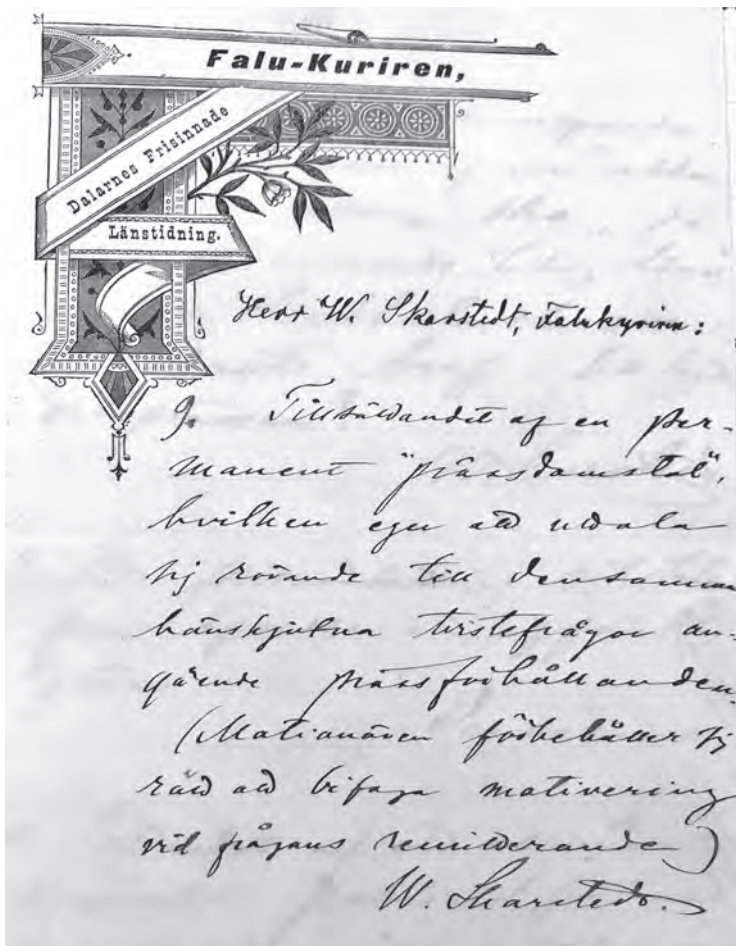 Falu-Kuriren,
Dalarnes Frisinnade
Länstidning.
Herr W. Skarstedt, Falukuriren:
Tillsättandet af en per-
manent "prässdomstol",
hvilken eger att uttala
sig rörande till densamma
hänskjutna tvistefrågor an-
gående prässförhållanden.
(Motionären förbehåller sig
rätt att bifoga motivering
vid frågans remitterande)
W. Skarstedt.